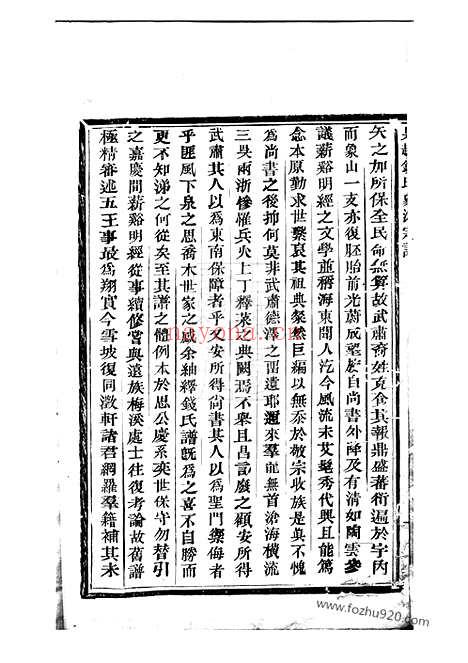 矢之加所保全民命無算故武肅裔姓克食其報鼎盛蕃衍遍於宇內
而象山一支亦復胚胎前光蔚成望族自尚書外禪及有清如陶雲參
議薪谿明經之文學並稱海東聞人迄今風流未艾髦秀代興且能篤
念本原勤求世繫裒其祖典粲然巨編以無忝於敬宗收族是真不愧
為尚書之後抑何莫非武肅德澤之留遺耶邇來羣龍無首滄海橫流
三吳兩浙慘罹兵火上丁釋菜祀典闕焉不舉且昌言廢之顧安所得
武肅其人以為東南保障者乎又安所得尚書其人以為聖門禦侮者
乎匪風下泉之思喬木世家之感余紬繹錢氏譜既為之喜不自勝而
更不知涕之何從矣至其譜之體例本於思公慶系奕世保守勿替引
之嘉慶間薪谿明經從事續修嘗與遠族梅溪處士往復考論故舊譜
極精審述五王事最為翔實今雪坡復同澂軒諸君網羅羣籍補其未
nayona.cn
www.fozhu920.com